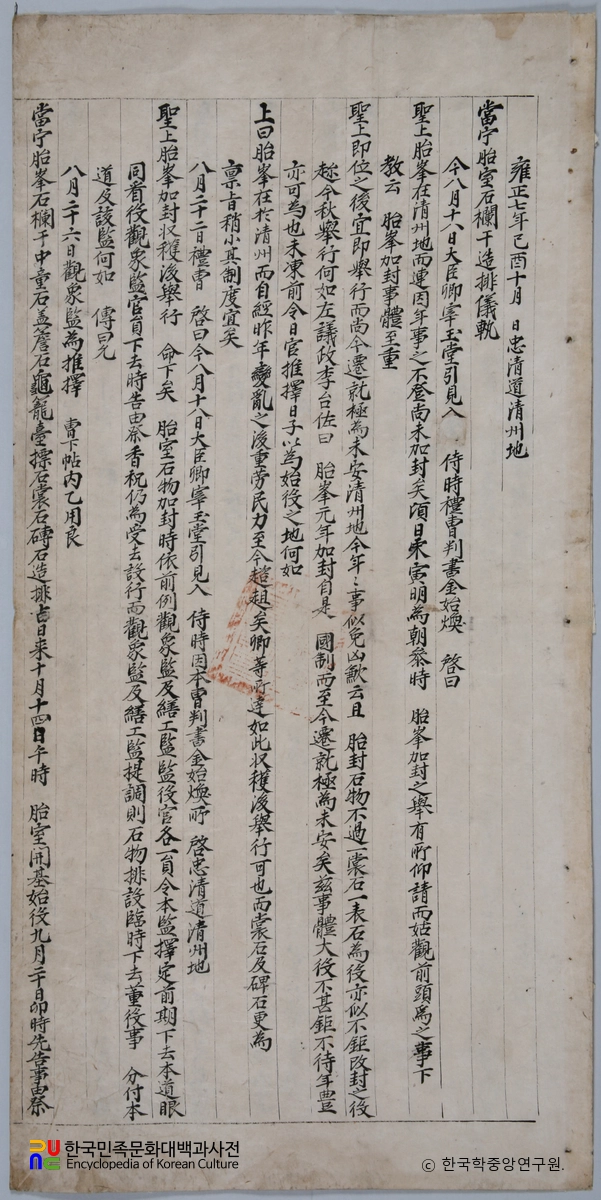 雍正七年己酉十月 日忠清道清州地
當宁胎室石欄干造排儀軌
今八月十八日大臣卿宰玉堂引見入 侍時禮曹判書金始煥 啓曰
聖上胎峯在清州地而連因年事之不登尚未加封矣頃日來寅明為朝參時 胎峯加封之擧有所仰請而姑觀前頭為之事下
敎云 胎峯加封事體至重
聖上即位之後宜即擧行而尚今遷就極為未安清州地今年年事似免凶歉云且 胎封石物不過一裳石一表石為役亦似不鉅改封之役
趂今秋擧行何如左議政李台佐曰 胎峯元年加封自是 國制而至今遷就極為未安矣玆事體大役不甚鉅不待年豊
亦可為也未凍前令日官推擇日子以為始役之地何如
上曰胎峯在於清州而自經昨年變亂之後重勞民力至今趦趄矣卿等所達如此收穫後擧行可也而裳石及碑石更為
稟旨稍小其制度宜矣
八月二十二日禮曹 啓曰今八月十八日大臣卿宰玉堂引見入 侍時因本曹判書金始煥所 啓忠清道清州地
聖上胎峯加封収穫後擧行 命下矣 胎室石物加封時依前例觀象監及繕工監監役官各一員令本監擇定前期下去本道眼
同看役觀象監官員下去時告由祭香祝仍為受去設行而觀象監及繕工監提調則石物排設臨時下去董役事 分付本
道及該監何如 傳曰允
八月二十六日觀象監為推擇 曹下帖內乙用良
當宁胎峯石欄干中童石盖簷石龜籠臺摽石裳石磚石造排吉日來十月十四日午時 胎室開基始役九月二十日卯時先告事由祭
한국민족문화대백과사전
Encyclopedia of Korean Culture
ⓒ 한국학중앙연구원.